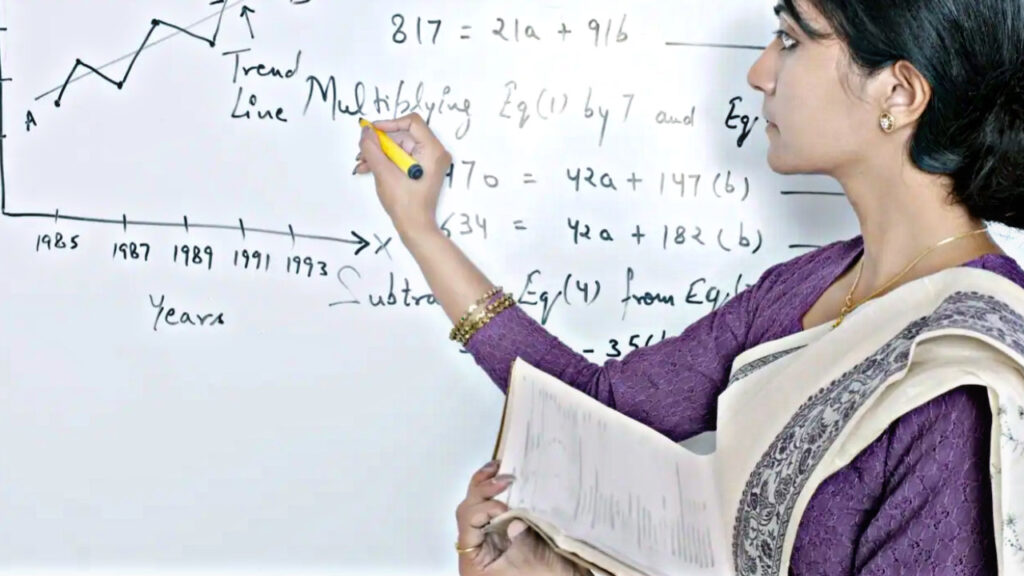 817 = 21a + 91b
Trend
Line
A
Multiplying Eq(1) by 7 and Eq
470 = 42a + 147(b)
634 = 42a + 182(b)
X
1985 1987 1989 1991 1993
Years
Eq(4) from Eq
- 35(